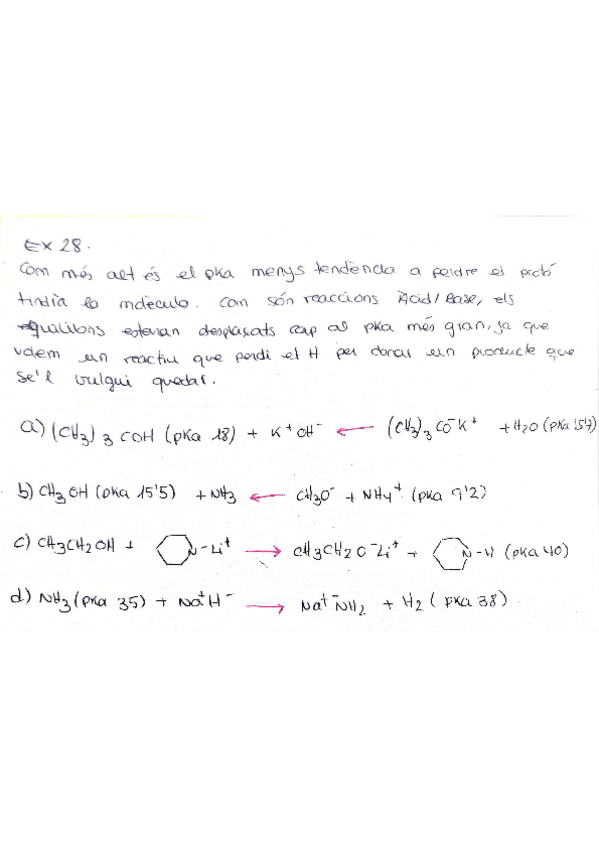 Ex 28.
Com més alt és el pka menys tendència a perdre el protó
tindrà la molècula. Com són reaccions Àcid/Base, els
equilibris estaran desplaçats cap al pka més gran, ja que
volem un reactiu que perdi el H per donar un producte que
se'l vulgui quedar.
a) (CH3)3 COH (pka 18) + K+OH- ← (CH3)3 CO-K+ + H2O (pka 15'7)
b) CH3OH (pka 15'5) + NH3 ← CH3O- + NH4+ (pka 9'2)
c) CH3CH2OH + N-Li+ → CH3CH2O-Li+ + N-H (pka 40)
d) NH3 (pka 35) + Na+H- → Na+-NH2 + H2 (pka 38)